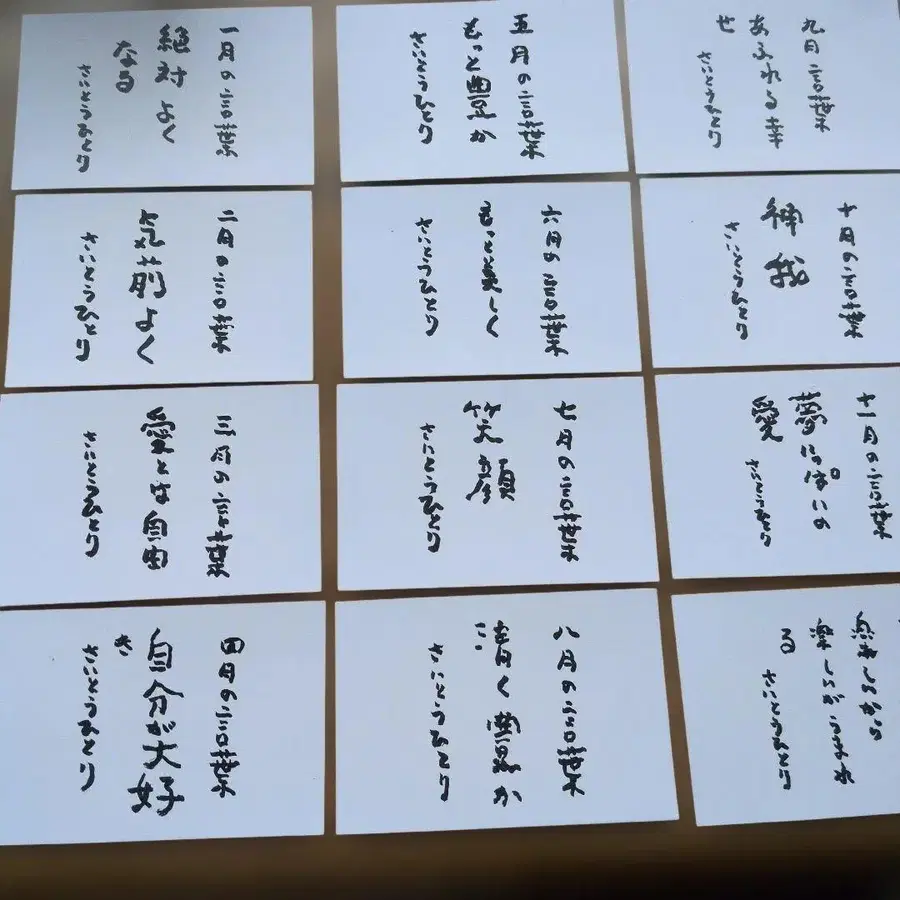 一月の言葉
絶対よく
なる
さいとうひとり
二月の言葉
気前よく
さいとうひとり
三月の言葉
愛とは自由
さいとうひとり
四月の言葉
自分が大好
き
さいとうひとり
五月の言葉
もっと豊か
さいとうひとり
六月の言葉
もっと美しく
さいとうひとり
七月の言葉
笑顔
さいとうひとり
八月の言葉
清く豊か
に
さいとうひとり
九月の言葉
あふれる幸
せ
さいとうひとり
十月の言葉
神我
さいとうひとり
十一月の言葉
夢いっぱいの
愛
さいとうひとり
楽しいから
楽しいがうまれ
る
さいとうひとり